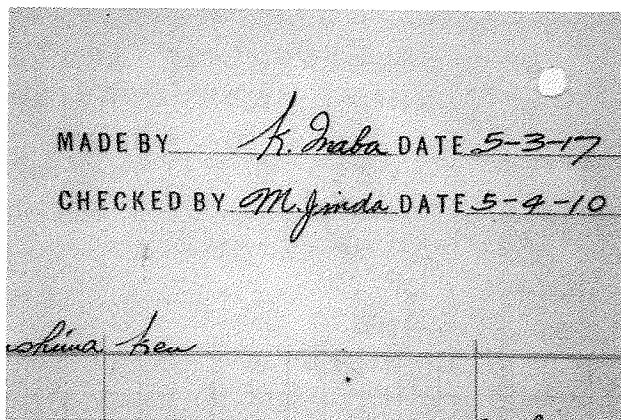 MADE BY K. Inaba DATE 5-3-17
CHECKED BY M. Jinda DATE 5-4-10
shima Ken